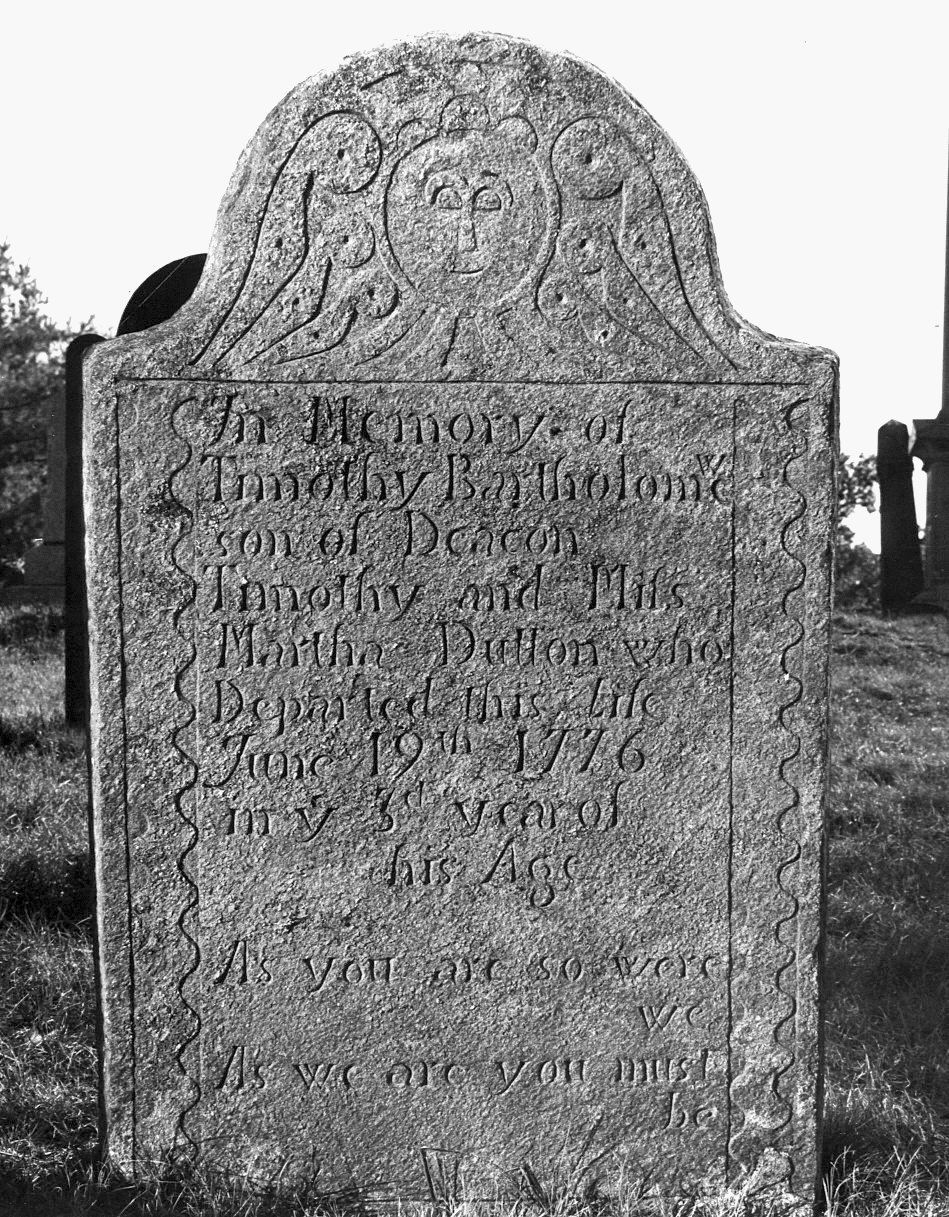 In Memory of
Timothy Bartholomw
son of Deacon
Timothy and Miſs
Martha Dutton who
Departed this Life
June 19th 1776
in y 3d year of
his Age
As you are so were
we
As we are you must
be